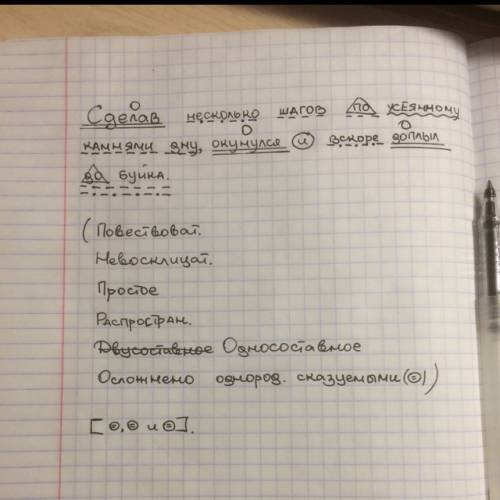 Сделав несколько шагов по усеянному
камнями дну, окунулся и вскоре доплыл
до буйка.
(Повествоват.
Невосклицат.
Простое
Распростран.
Двусоставное Односоставное
Осложнено однород. сказуемыми (=))
[=, = и =].